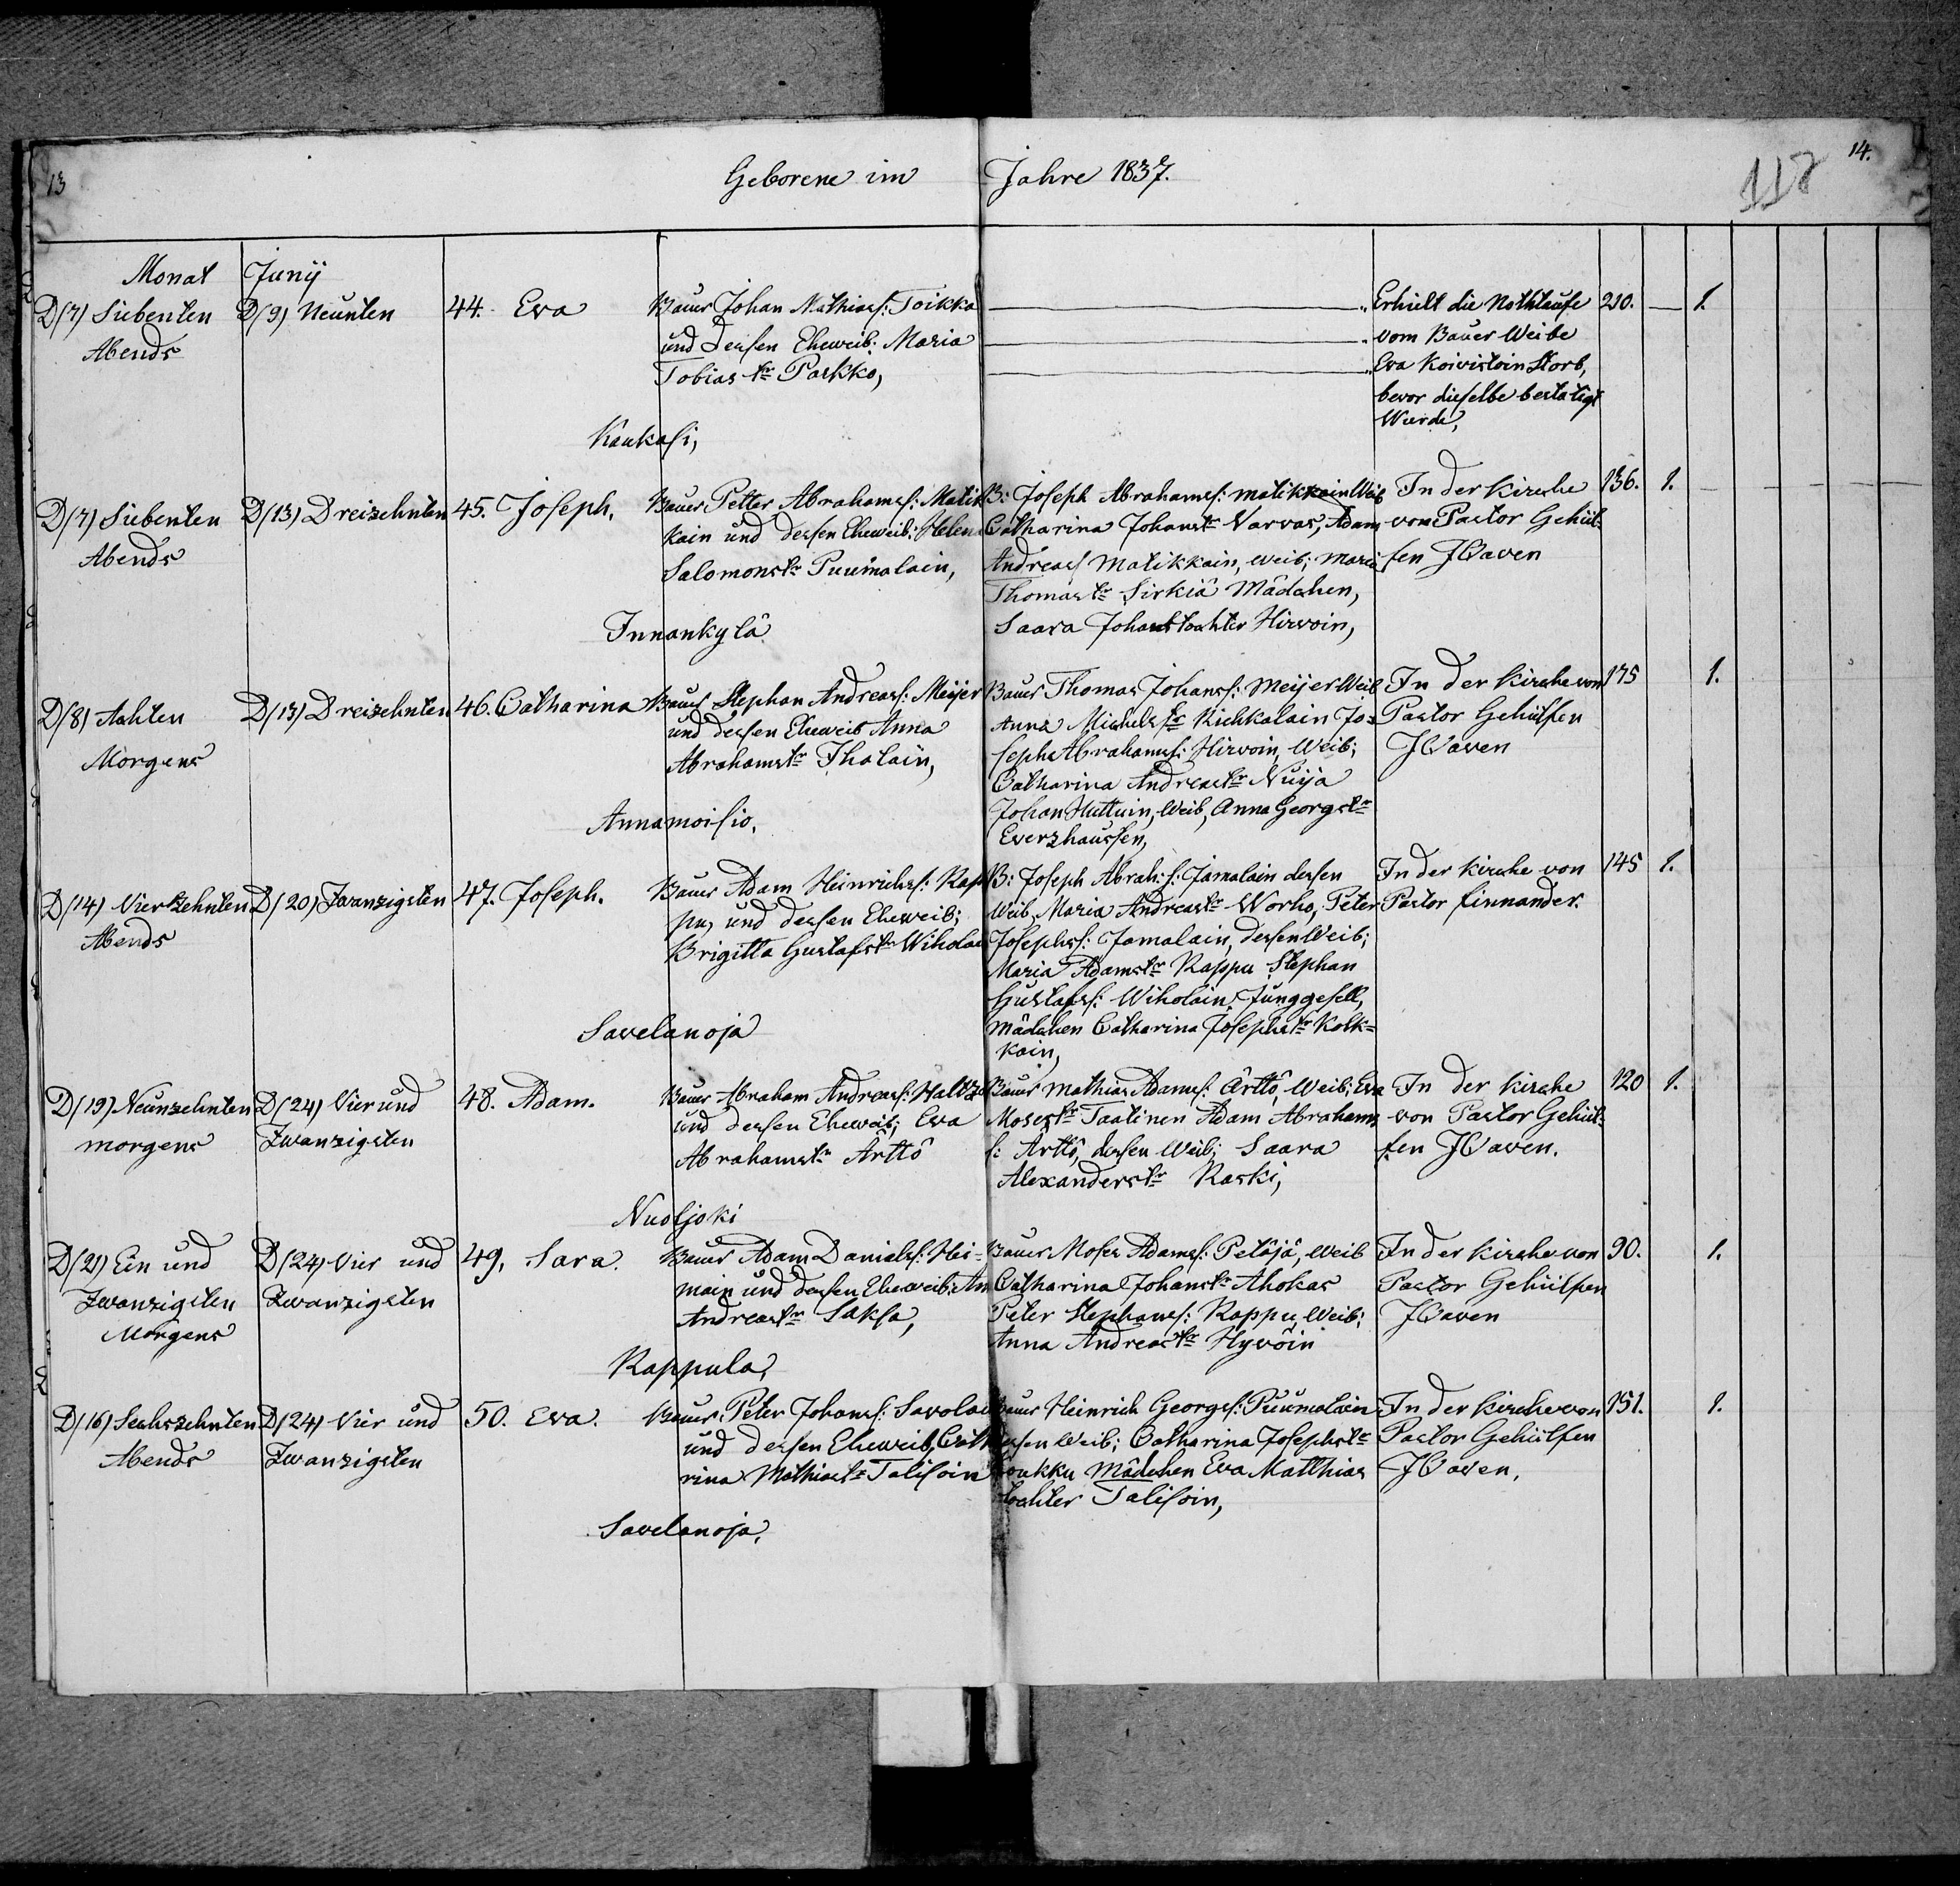 13
Geborene im Jahre 1837.
14.
118
Monat Junÿ
D(7) Siebenten
Abends
D(9) Neunten
44. Eva
Bauer Johan Mathiass: Toikka
und dessen Eheweib: Maria
Tobias tr Parkko,
Kaukasi,
Erhielt die Nothtaufe
vom Bauer Weibe
Eva Koivistoin Storb,
bevor dieselbe bestatigt
Wurde,
210. — 1.
D(7) Siebenten
Abends
D(13) Dreizehnten
45. Joseph.
Bauer Petter Abrahamss: Matik
kain und dessen Eheweib: Helena
Salomonstr Puumalain,
Innankylä
B: Joseph Abrahamss: Matikkain Weib
Catharina Johanstr Varvas, Adam
Andreass Matikkain, Weib; Maria
Thomastr Sirkiä Mädchen,
Saara Johanstochter Hirvoin,
In der Kirche
von Pastor Gehül-
fen JCaven
136. 1.
D(8) Achten
Morgens
D(13) Dreizehnten
46. Catharina
Bauer Stephan Andreass: Meijer
und dessen Eheweib Anna
Abrahamstr Ihalain,
Annamoisio,
Bauer Thomas Johanss: Meijer Weib
Anna Michelstr Kichkalain Jo-
sephs Abrahamss: Hirvoin, Weib;
Catharina Andreastr Nuija
Johan Huttuin, Weib, Anna Georgstr
Everzhaussen,
In der Kirche von
Pastor Gehülfen
JCaven
175 1.
D(14) Vierzehnten
Abends
D(20) Zwanzigsten
47. Joseph.
Bauer Adam Heinrichss: Rap
pu, und dessen Eheweib;
Brigitta Gustafstr Wiholain
Savelanoja
B: Joseph Abrah: s: Jamalain dessen
Weib, Maria Andreastr Worho, Peter
Josephss: Jamalain, dessen Weib;
Maria Adamstr Rappu Stephan
Gustafss: Wiholain, Junggesell,
Mädchen Catharina Josephstr Kolk-
kain,
In der Kirche von
Pastor Linnander.
145 1.
D(19) Neunzehnten
morgens
D(24) Vier und
Zwanzigsten
48. Adam.
Bauer Abraham Andreass:
und dessen Eheweib; Eva
Abrahamstr Ärttö
Nuoljoki
Bauer Mathias Adamss: Ärttö, Weib; Eva
Mosestr Taatinen Adam Abrahams
s: Ärttö, dessen Weib; Saara
Alexanderstr Raski,
In der Kirche
von Pastor Gehül-
fen JCaven.
120 1.
D(21) Ein und
Zwanzigsten
Morgens
D(24) Vier und
Zwanzigsten
49. Sara.
Bauer Adam Daniels: Hei-
main und dessen Eheweib: An
Andreastr Saksa,
Rappula,
Bauer Moses Adamss: Petäjä, Weib
Catharina Johanstr Ahokas
Peter Stephanss: Rappu, Weib;
Anna Andreastr Hyvöin
In der Kirche von
Pastor Gehülfen
JCaven
90. 1.
D(16) Sechszehnten
Abends
D(24) Vier und
Zwanzigsten
50. Eva.
Bauer: Peter Johanss: Savolai
und dessen Eheweib, Cath
rina Mathiastr Talisoin
Savelanoja,
Bauer Heinrich Georgs: Puumalain
dessen Weib; Catharina Josephstr
Loukku Mädchen Eva Matthias
tochter Talisoin,
In der Kirche von
Pastor Gehülfen
JCaven.
151. 1.